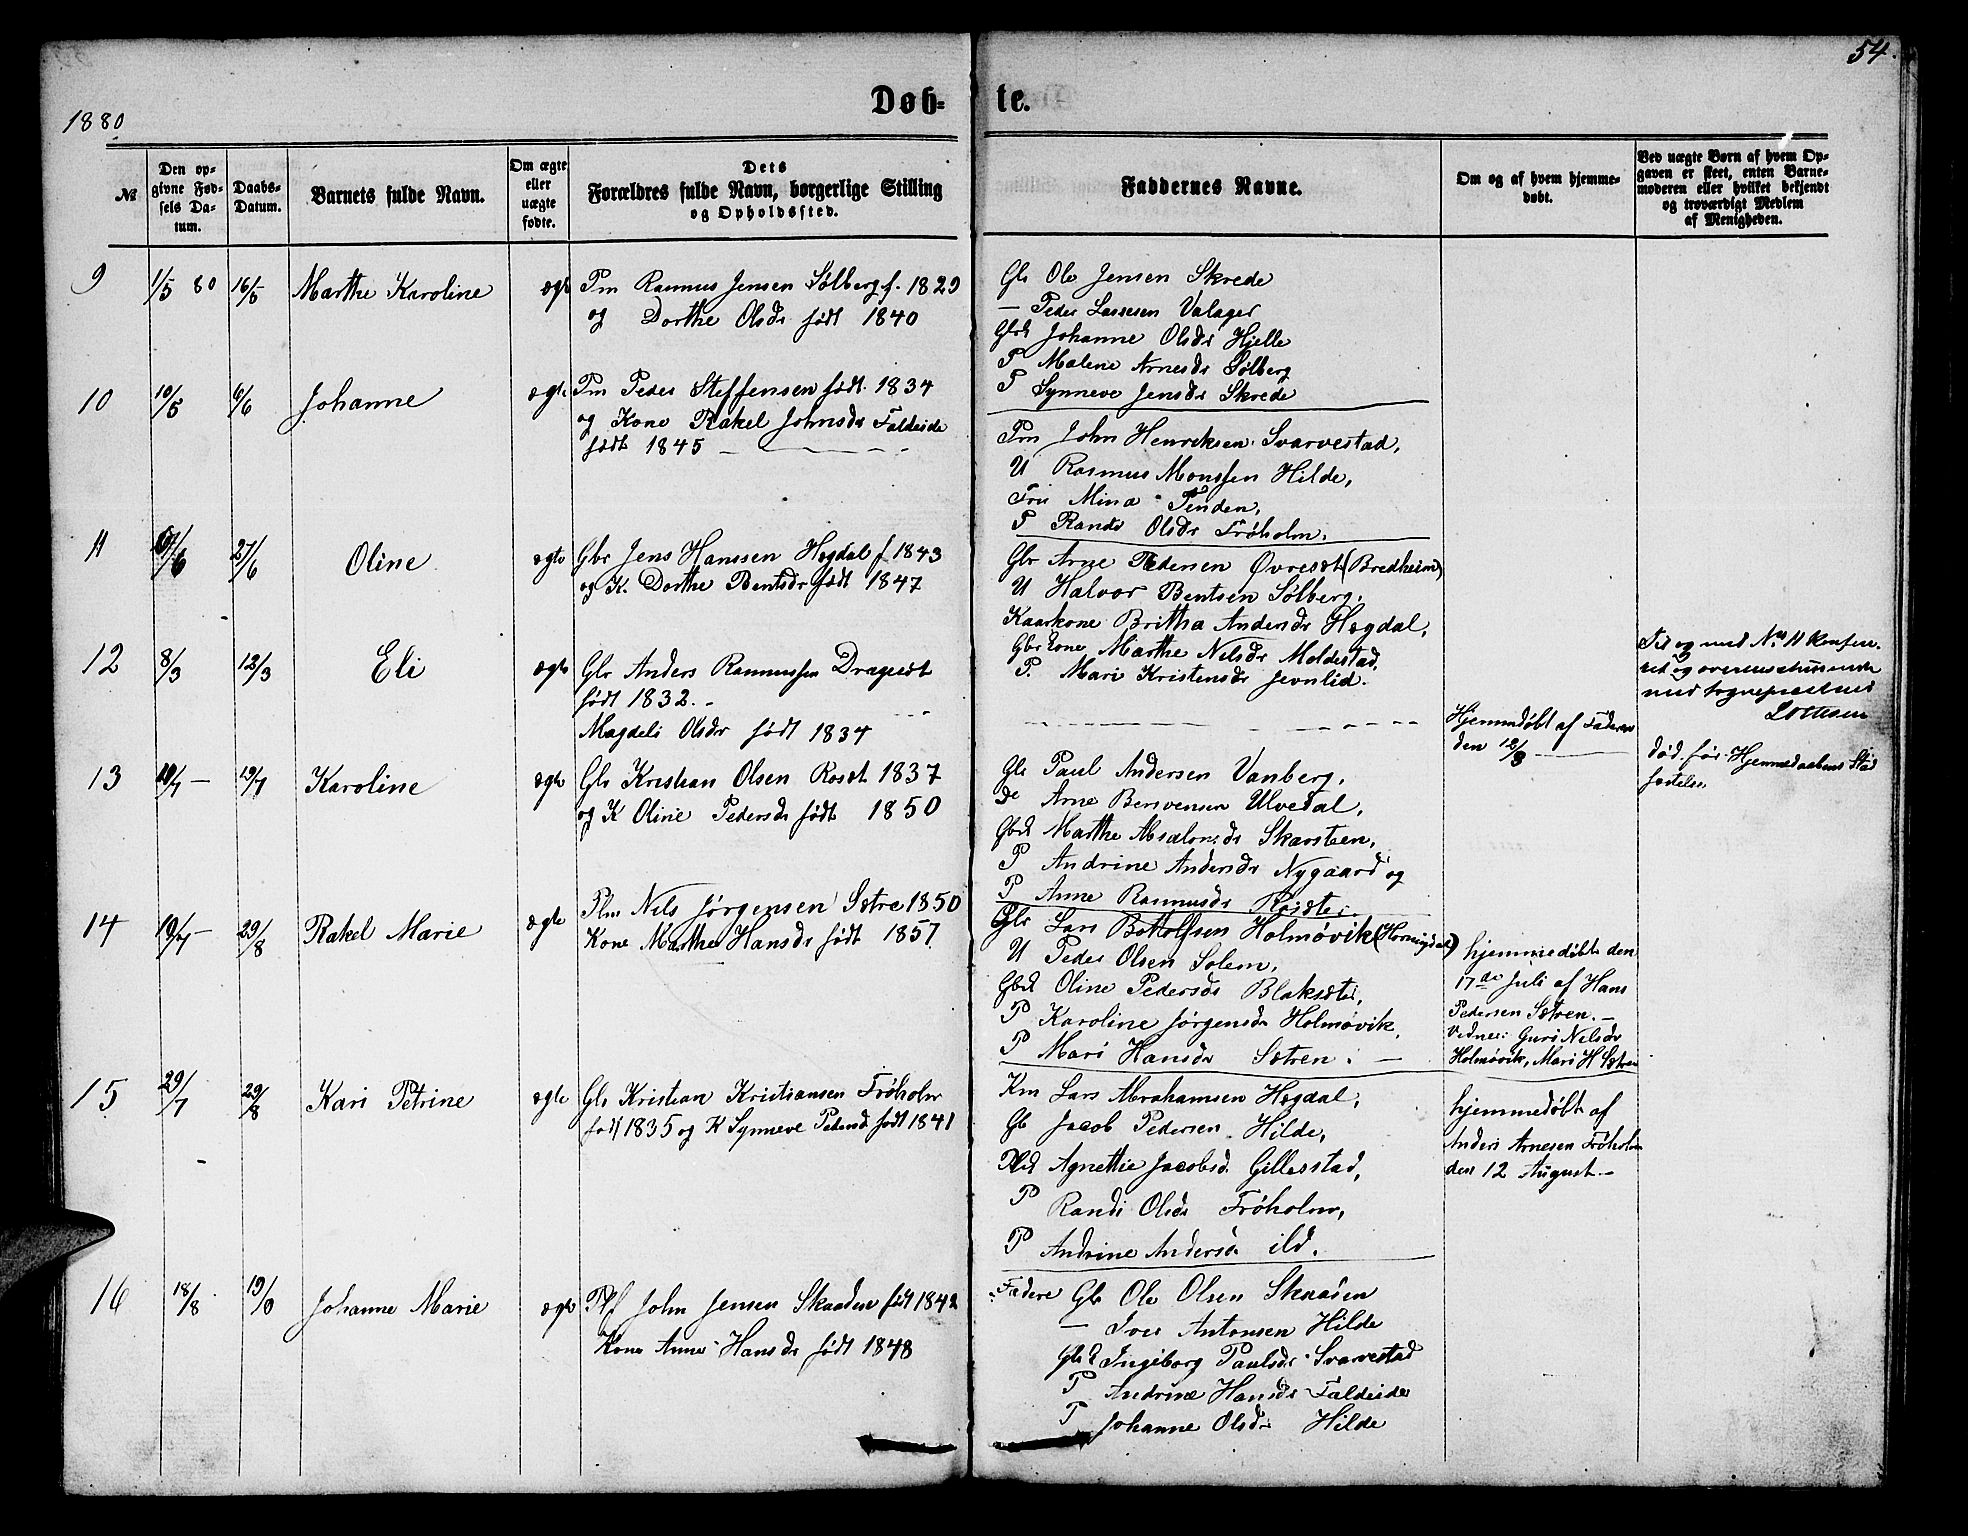 54.
1880
Døb-te.
№
Den op-
givne Fød-
sels Da-
tum.
Daabs-
Datum.
Barnets fulde Navn.
Om ægte
eller
uægte
fødte.
Dets
Forældres fulde Navn, borgerlige Stilling
og Opholdssted.
Faddernes Navne.
Om og af hvem hjemme-
døbt.
Ved uægte Børn af hvem Op-
gaven er skeet, enten Barne-
moderen eller hvilket bekjendt
og troværdigt Medlem
af Menigheden.
9 1/5 80 16/5 Marthe Karoline ægte Pm Rasmus Jensen Sølberg f. 1829
og Dorthe Olsdr født 1840
Gbr Ole Jensen Skrede
— Peder Lassesen Valager
Gbrk Johanne Olsdr Hjelle
P Malene Arnesdr Sølberg
P Synneve Jensdr Skrede
10 10/5 6/6 Johanne ægte Pm Peder Steffensen født 1834
og Kone Rakel Johnsdr Faldeide
født 1845
Pm John Henriksen Svarvestad,
U Rasmus Monssen Hilde,
Frü Mina Tenden,
P Rande Olsdr Frøholm.
11 27/6 Oline ægte Gbr Jens Hanssen Hogdal f 1843
og K. Dorthe Bentsdr født 1847
Gbr Arne Pedersen Øvreset (Bredheim)
U Halvor Bentsen Sølberg,
Kaarkone Britha Andersdr Hogdal,
Gbrkone Marthe Nilsdr Meldestad,
P. Mari Kristensdr Jevnlid.
12 8/3 12/3 Eli ægte Gbr Anders Rasmussen Dragesæt
født 1832.
Magdeli Olsdr født 1834
Hjemmedøbt af Faderen
den 12/3
Til og med No 11 konfere-
ret og overensstemmende
med Sogneprestens
død før Hjemmedaabens Stad
festelse
13 10/7 — 19/7 Karoline ægte Gbr Kristian Olsen Roset 1837
og K Oline Pedersdr født 1850
Gbr Paul Andersen Vanberg,
do Arne Bensvensen Ulvedal,
Gbrk Marthe Absalonsdr Skarsteen,
P Andrine Andersdr Nygaard og
P Anne Rasmusdr
14 29/8 Rakel Marie ægte Plm Nils Jørgensen Sætre 1850
Kone Marthe Hansdr født 1857
Gbr Lars Bottolfsen Holmøvik (Horningdal)
U Peder Olsen Solem,
Gbrk Oline Pedersdr Blaksæter,
P Karoline Jørgensdr Holmøvik,
P Mari Hansdr Sætren. —
hjemmedøbt den
17de Juli af Hans
Pedersen Sætren. —
Vidner: Guri Nilsdr
Holmøvik, Mari H Sætren
15 29/7 29/8 Kari Petrine ægte Gbr Kristian Kristiansen Frøholm
født 1835 og K Synneve Pedersd født 1841
Km Lars Abrahamsen Hogdal,
Gb Jacob Pedersen Hilde,
Agnethe Jacobsd. Gillesstad,
P Randi Olsdr Frøholm,
P Andrine Andersd ibd.
hjemmedøbt af
Anders Arnesen Frøholm
den 12 August. —
16 18/8 Johanne Marie ægte Plf John Jensen Skaaden født 1842
Kone Anne Hansdr født 1848
Faddere Gbr Ole Olsen Skaaden
— Iver Antonsen Hilde
Gbrk Ingeborg Paulsdr Svarvestad
P Andrine Hansdr Faldeide
P Johanne Olsdr Hilde